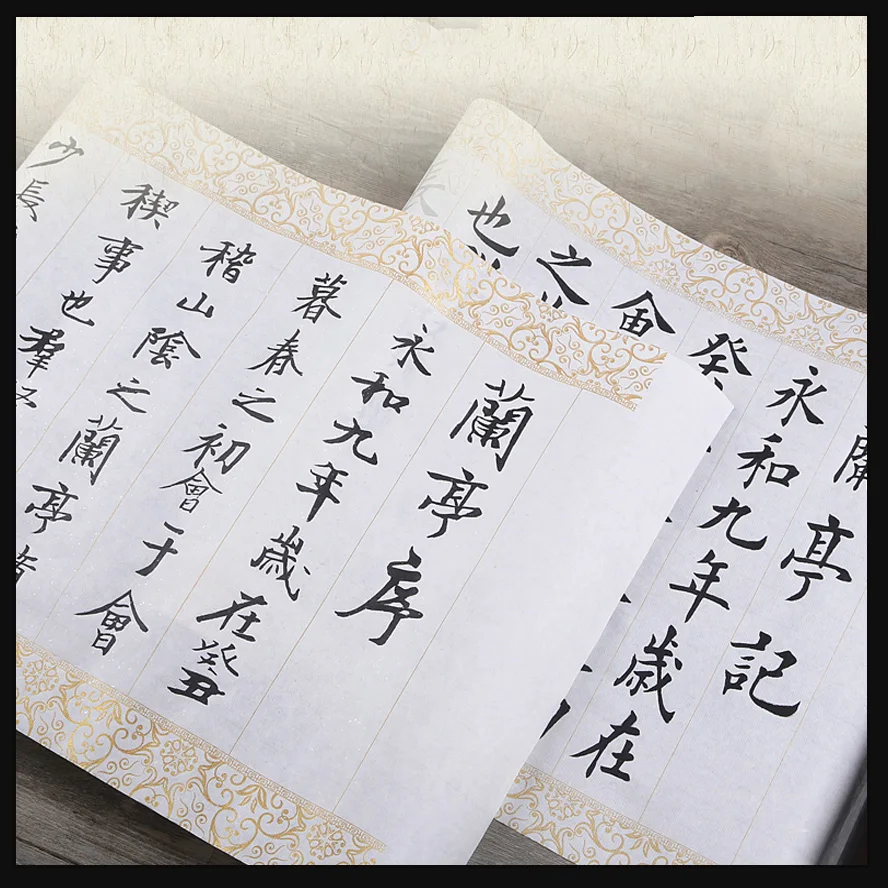 蘭亭序
永和九年歲在癸丑
暮春之初會于會
稽山陰之蘭亭
禊事也羣
少長
亭記
永和九年歲在
癸
之
也